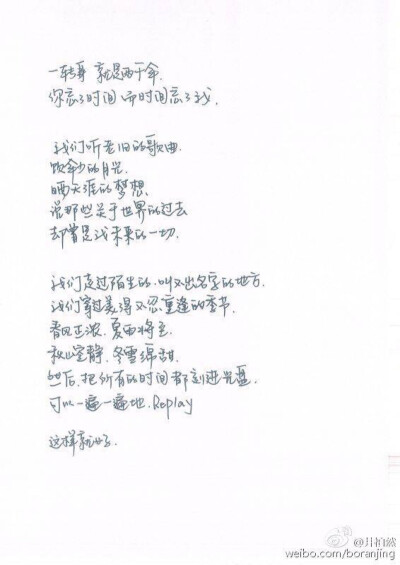 一转身 就是两个命.
你忘了时间 而时间忘了我.
我们听老旧的歌曲.
饮缺少的月光.
晒天涯的梦想.
说那些关于世界的过去
却曾是我未来的一切.
我们走过陌生的.叫不出名字的地方.
我们穿过美得不忍重逢的季节.
春风正浓.夏雨将至.
秋山空静.冬雪绵甜.
然后.把所有的时间都刻进光盘.
可以一遍一遍地.Replay
这样就好了.
@井柏然
weibo.com/boranjing